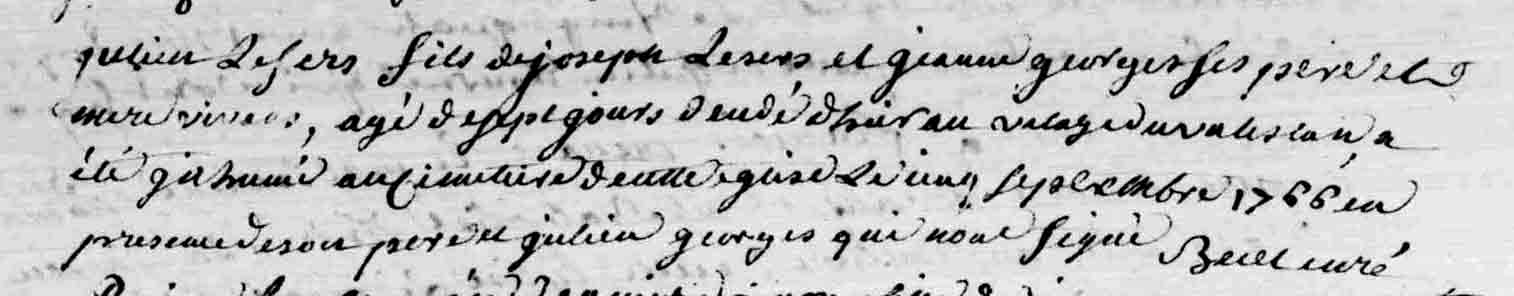 julien Lesers fils de joseph Lesers et jeanne georges ses pere et
mere vivans, agé de sept jours decedé dhier au vilage du a
été jnhumé au cimetiere de cette eglise Le cinq septembre 1766 en
presence de son pere et julien georges qui nont signé curé